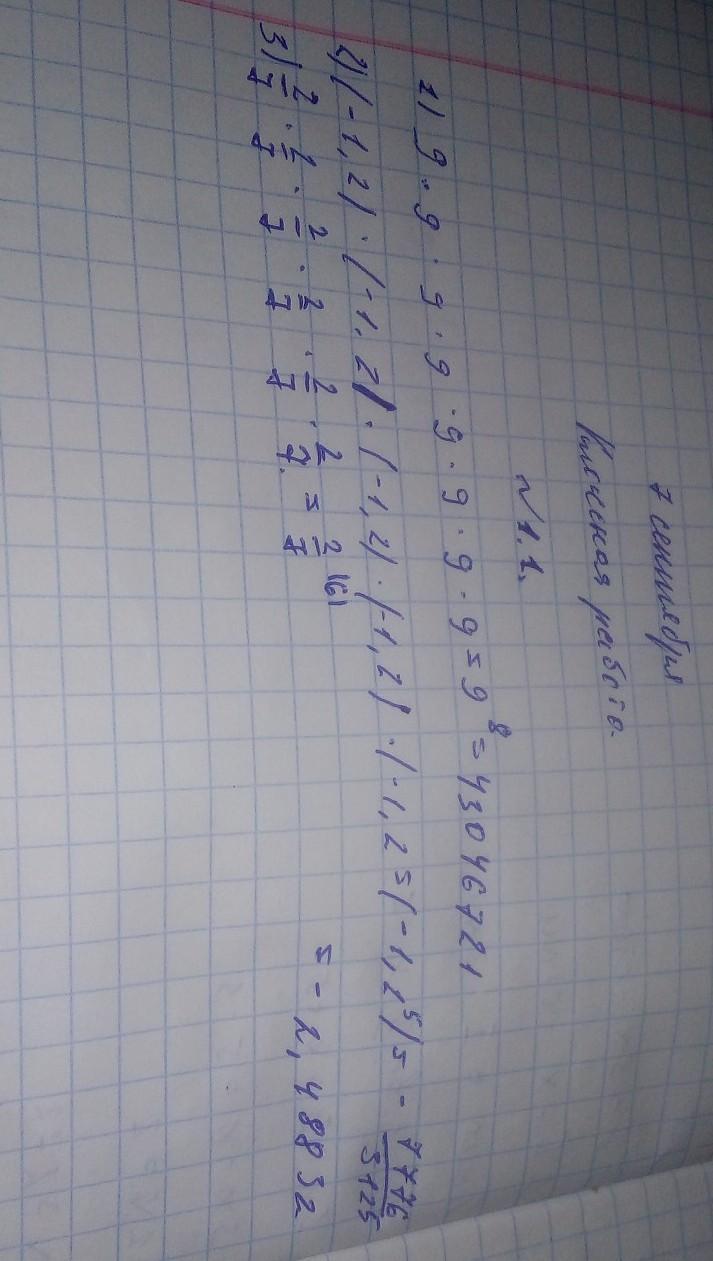 7 сентября
Классная работа.
№1.1.
1) 9·9·9·9·9·9·9·9=9⁸=43046721
2) (-1,2)·(-1,2)·(-1,2)·(-1,2)·(-1,2=(-1,2⁵)=-7776/3125
=-2,48832
3) 2/7·2/7·2/7·2/7·2/7·2/7=2/7⁽⁶⁾